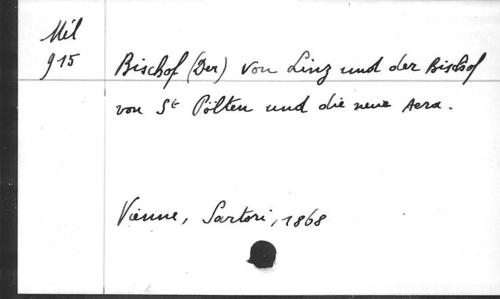 Mil
915
Bischof (Der) von Linz und der Bischof
von St Pölten und die neue Aera.
Vienne, Sartori, 1868